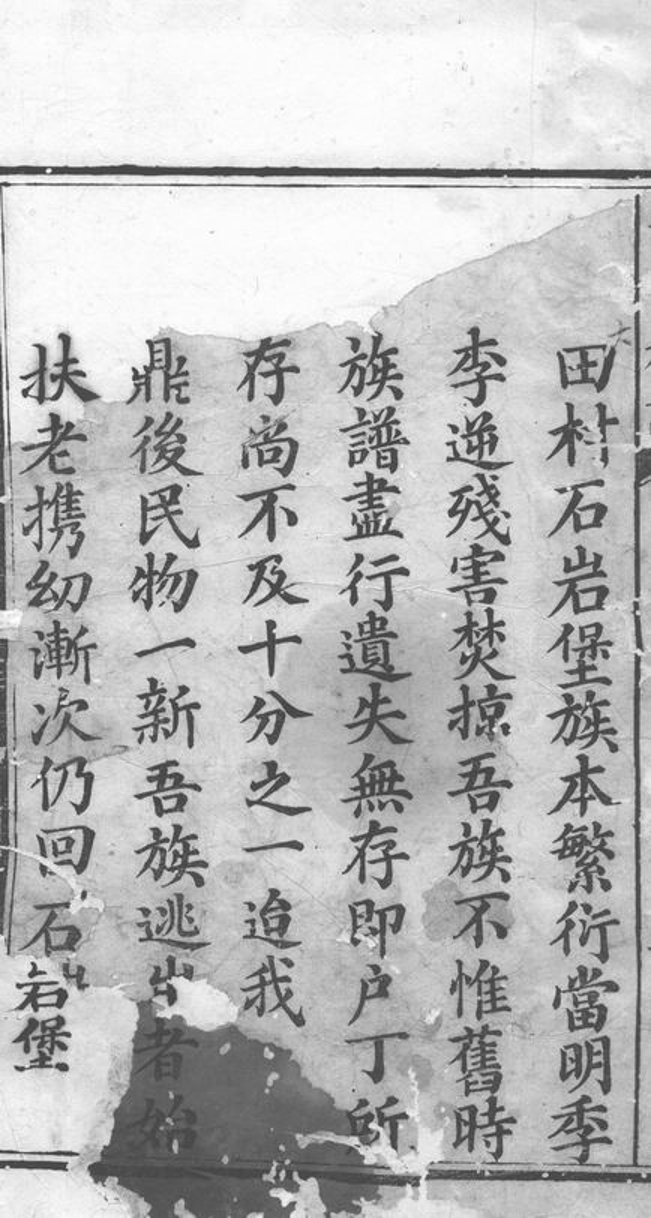 田村石岩堡族本繁衍當明季
李逆殘害焚掠吾族不惟舊時
族譜盡行遺失無存即户丁所
存尚不及十分之一迨我
鼎後民物一新吾族逃出者始
扶老携幼漸次仍回石岩堡